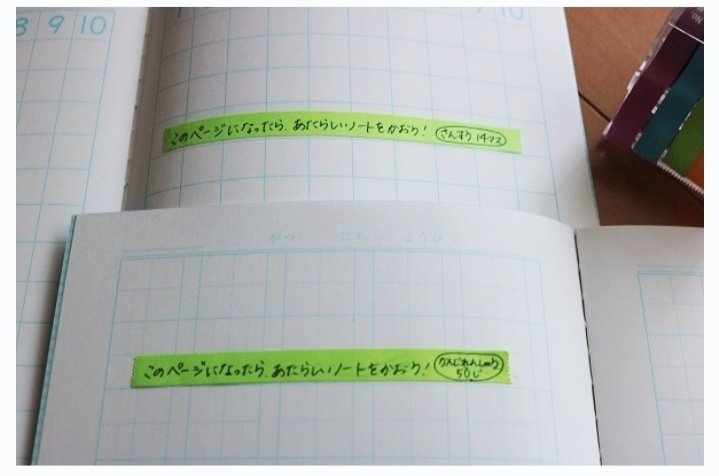 8 9 10
10
このページになったら、あたらしいノートをかおう! さんすう 14マス
がつ にち ようび
このページになったら、あたらしいノートをかおう! かんじれんしゅう 50じ